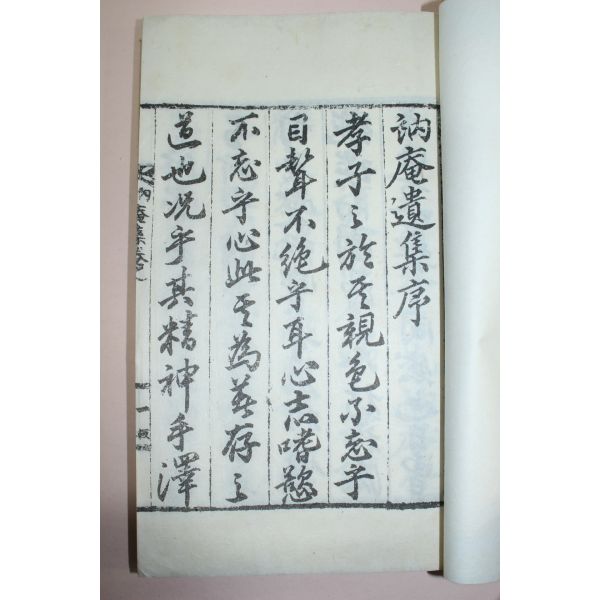 訥庵遺集序
孝子之於其親色不忘乎
目聲不絶乎耳心志嗜慾
不忘乎心此其為著存之
道也况乎其精神手澤
訥庵集卷
一